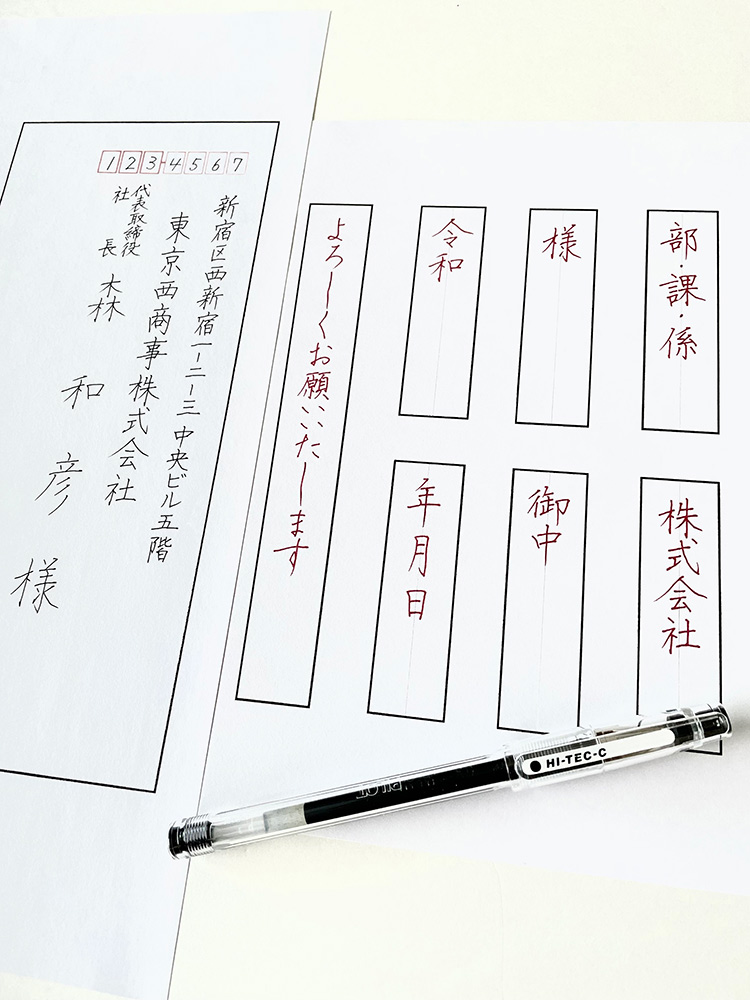 1234567
新宿区西新宿一ー二ー三 中央ビル五階
東京西商事株式会社
代表取締役
社長
森和彦様
部・課・係
様
令和
よろしくお願いいたします
株式会社
御中
年月日
HI-TEC-C
PILOT